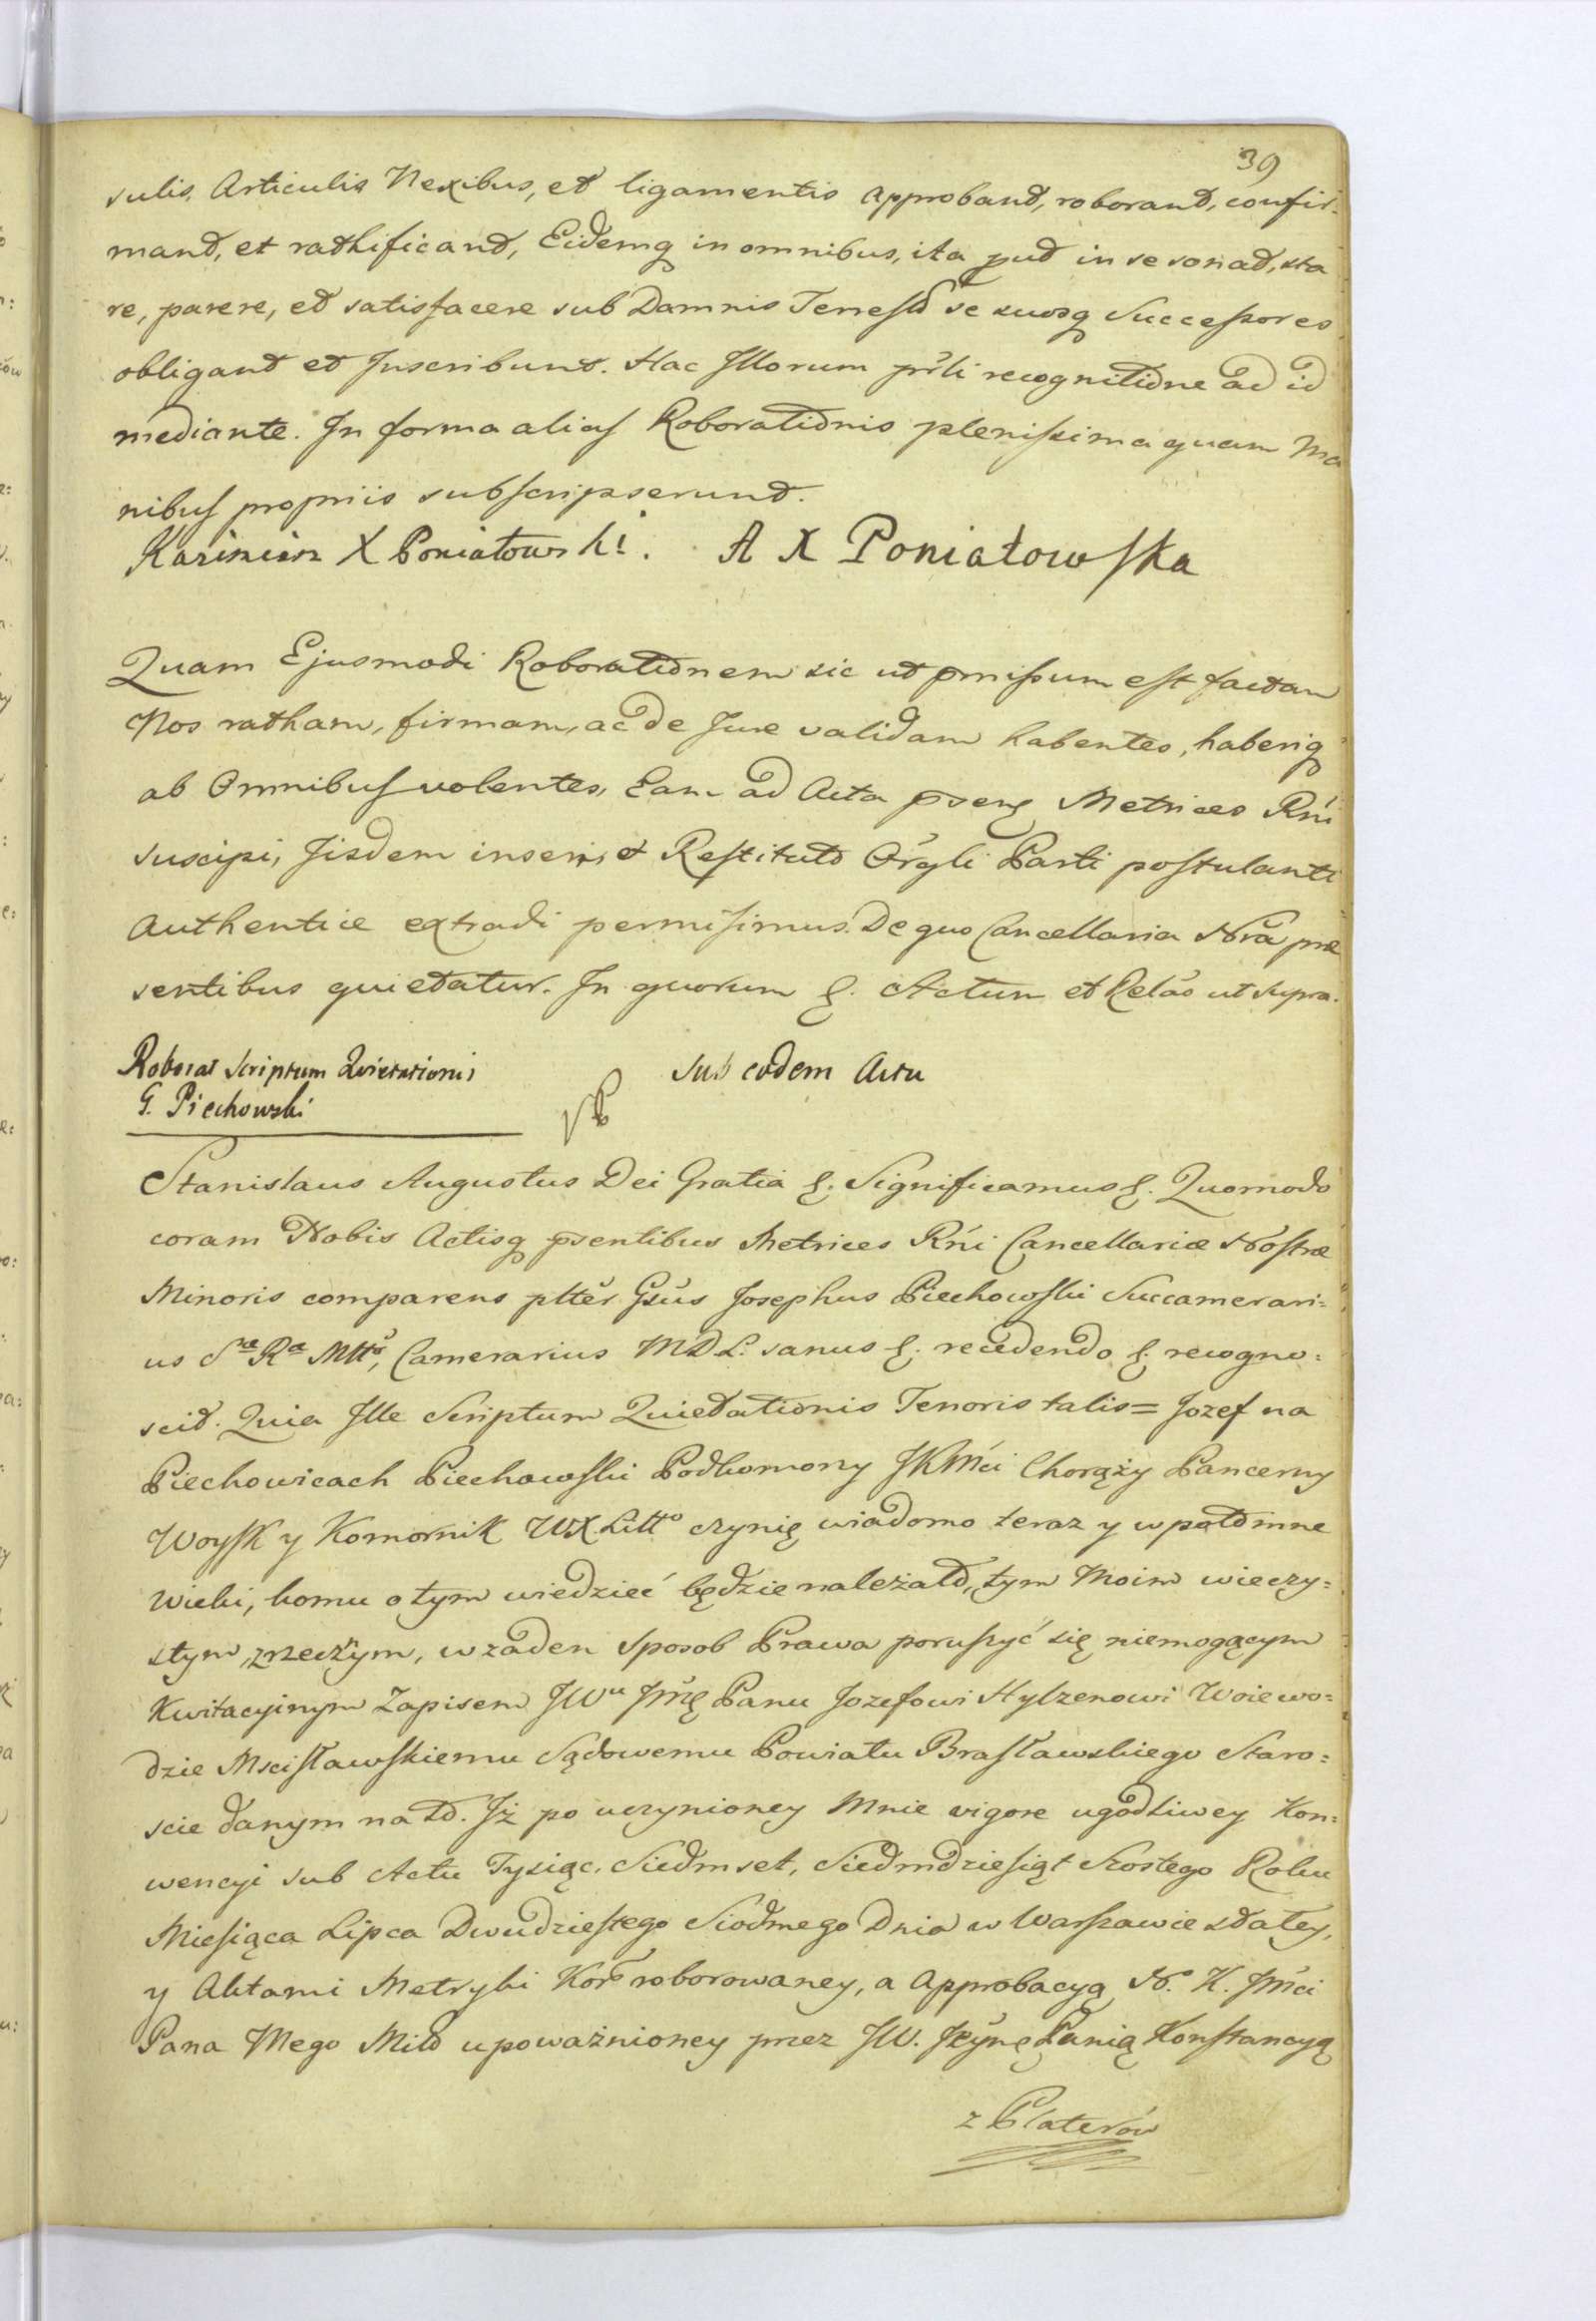 39
sulis, Articulis Nexibus, et ligamentis approband, roborand, confir-
mand, et rathificand, Eidemq in omnibus, ita pud in se sonat, sta
re, parere, et satisfacere sub Damnis Terrestd se suosq Successores
obligant et Inscribunt. Hac Illorum prśli recognitione ad id
mediante. In forma alias Roborationis plenissima quam Ma
nibus propriis subscripserunt.
Kazimierz X Poniatowski. A X Poniatowska
Quam Ejusmodi Roborationem sic ut pmissum est factam
Nos ratham, firmam, ac de Jure validam habentes, haberiq
ab Omnibus volentes, Eam ad Acta psens Metrices Rni
suscipi, Iisdem inseri, et Restituto Orgli Parti postulanti
Authentice extradi permisimus. De quo Cancellaria Nra præ
sentibus quietatur. In quorum &. Actum et Relao ut supra.
Roborat Scriptum Quietationis sub eodem Actu
G. Piechowski
Stanislaus Augustus Dei Gratia &. Significamus &. Quomodo
coram Nobis Actisq psentibus Metrices Rni Cancellariæ Nostræ
Minoris comparens plter Gsus Josephus Piechowski Succamerari=
us Sræ Ræ Mttis, Camerarius M D L. sanus &. recedendo &. recogno=
scit. Quia Ille Scriptum Quietationis Tenoris talis = Jozef na
Piechowicach Piechowski Podkomorzy JKMci Chorąży Pancerny
Woysk y Komornik WX Litto czynię wiadomo teraz y w potomne
Wieki, komu o tym wiedzieć będzie należało, tym Moim wieczy=
stym, zrzecznym, w zaden Sposob Prawa poruszyć się niemogącym
Kwitacyinym Zapisem JWu Jmę Panu Jozefowi Hylzenowi Woiewo=
dzie Mscisławskiemu Sądowemu Powiatu Brasławskiego Staro=
scie danym na to. Iż po uczynioney Mnie vigore ugodliwey Kon=
wencyi sub Actu Tysiąc, Siedmset, Siedmdziesiąt Szostego Roku
Miesiąca Lipca Dwudziestego Siodmego Dnia w Warszawie zdałey,
y Aktami Metryki Kor̃ roborowaney, a Approbacyą N. K. Jmci
Pana Mego Miło upoważnioney przez JW. Jeymę Panią Konstancyą
z Platerów